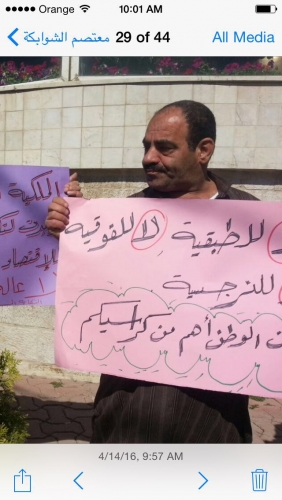 Orange 10:01 AM
معتصم الشوابكة 29 of 44 All Media
الملكية
للإقتصاد
للطبقية لا للفوقية
للنرجسية
الوطن أهم من كراسيكم
4/14/16, 9:57 AM